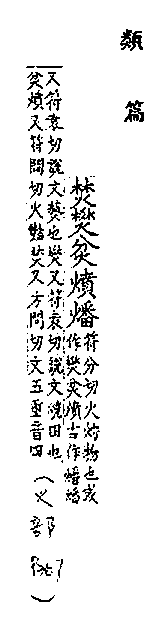 類篇
焚燓炃燌燔
符分切火灼物也或
作燓炃燌古作燔
又符袁切說文爇也燓又符袁切說文燒田也
炃燌又符問切火豔燓又方問切文五重音四
(火部)